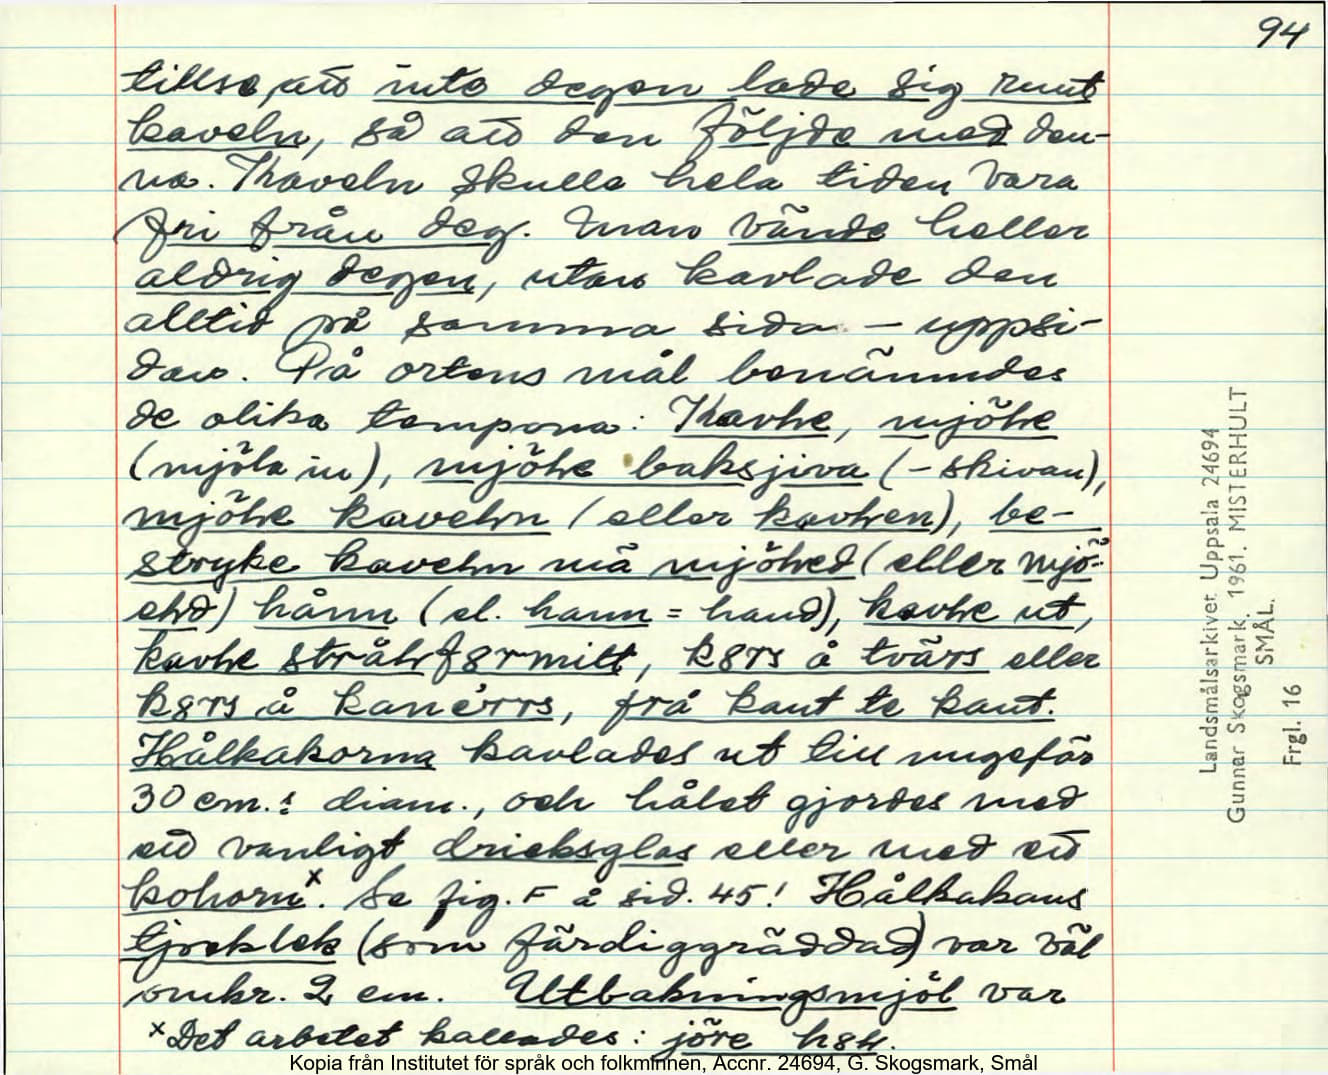 94
tillse, att inte degen lade sig runt
kaveln, så att den följde med den-
na. Kaveln skulle hela tiden vara
fri från deg. Man vände heller
aldrig degen, utan kavlade den
alltid på samma sida – uppsi-
dan. På ortens mål benämndes
de olika tempona: Kavłe, mjöłe
(mjöla in), mjöłe baksjiva (-skivan),
mjöłe kavełn (eller kavłen), be-
stryke kavełn mä mjöłed (eller mjö-
ełd) hånn (el. hann = hand), kavłe ut,
kavłe stråł f8rmitt, k8rs å tvärs eller
k8rs å kanérrs, frå kant te kant.
Hålkakorna kavlades ut till ungefär
30 cm.:s diam., och hålet gjordes med
ett vanligt dricksglas eller med ett
kohorn x. Se fig. F å sid. 45! Hålkakans
tjocklek (som färdiggräddad) var väl
omkr. 2 cm. Utbakningsmjöl var
x Det arbetet kallades: jöre h8ł.
Landsmålsarkivet Uppsala 24694
Gunnar Skogsmark. 1961. MISTERHULT
SMÅL.
Frgl. 16
Kopia från Institutet för språk och folkminnen, Accnr. 24694, G. Skogsmark, Smål